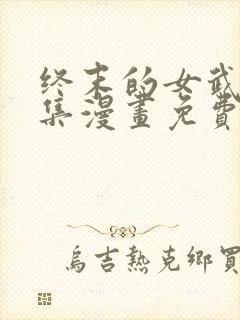 终末的女武
集漫畫免費
烏吉熱克鄉買